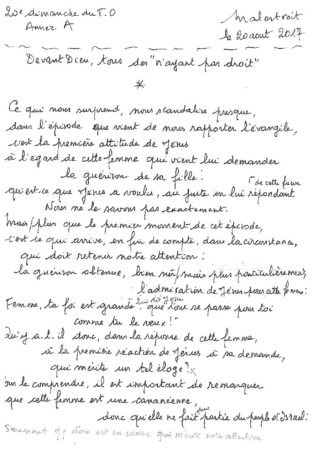 20e dimanche du T.O
Malestroit
Année A
le 20 aout 2017
Devant Dieu, tous des "n'ayant pas droit"
*
Ce qui nous surprend, nous scandalise presque,
dans l'épisode que vient de nous rapporter l'évangile,
c'est la première attitude de Jésus
à l'égard de cette femme qui vient lui demander
la guérison de sa fille :
qu'est-ce que Jésus a voulu, au juste en lui répondant de cette façon
Nous ne le savons pas exactement.
Mais/plus que le premier moment de cet épisode,
c'est ce qui arrive, en fin de compte, dans la circonstance,
qui doit retenir notre attention :
la guérison obtenue, bien sûr/mais plus particulièrement,
l'admiration de Jésus pour cette femme :
Femme, ta foi est grande lui dit Jésus que tout se passe pour toi
comme tu le veux !"
Qu'y a.t.il donc, dans la réponse de cette femme,
à la première réaction de Jésus à sa demande,
qui mérite un tel éloge !
Pour le comprendre, il est important de remarquer
que cette femme est une cananéenne.
donc qu'elle ne fait pas partie du peuple d'Israël.
Surement qq chose est en cause qui mérite notre attention